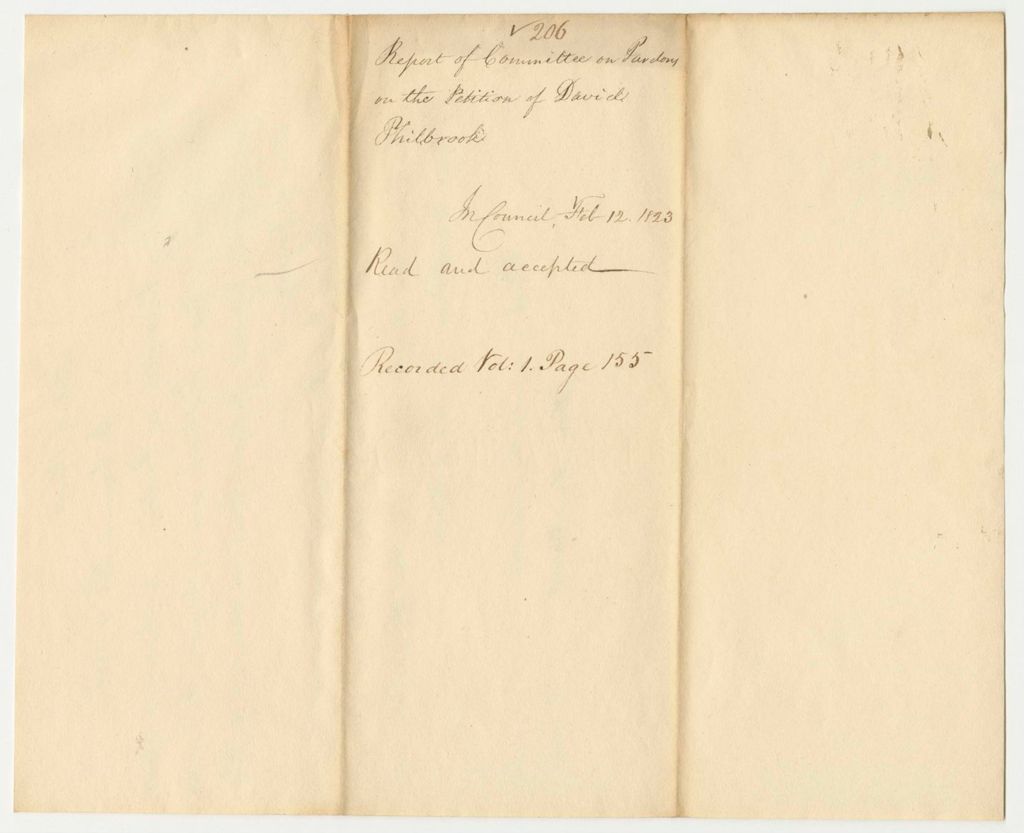 ✓ 206
Report of Committee on Pardons
on the Petition of David
Philbrook
In Council, Feb 12. 1823
Read and accepted
Recorded Vol: 1. Page 155